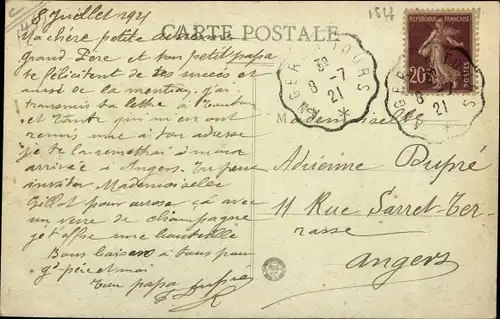 1547
8 Juillet 1921
CARTE POSTALE
RÉPUBLIQUE FRANÇAISE
20c
POSTES
ANGERS A TOURS
3e
8 -7
21
Ma chère petite Adrienne
Grand Père et ton petit papa
te félicitent de tes succès et
aussi de la mention. J'ai
transmis ta lettre à Tonton
et Tante qui m'en ont
remis une à ton adresse
je te la remettrai à mon
arrivée à Angers. Tu peux
inviter Mademoiselle
Gillot pour arroser çà avec
un verre de champagne
je t'offre une bouteille
Bons baisers à tous pour
gd père et moi
Ton papa Dupré
Mademoiselle
Adrienne Dupré
11 Rue Sarret-Ter-
rasse
Angers